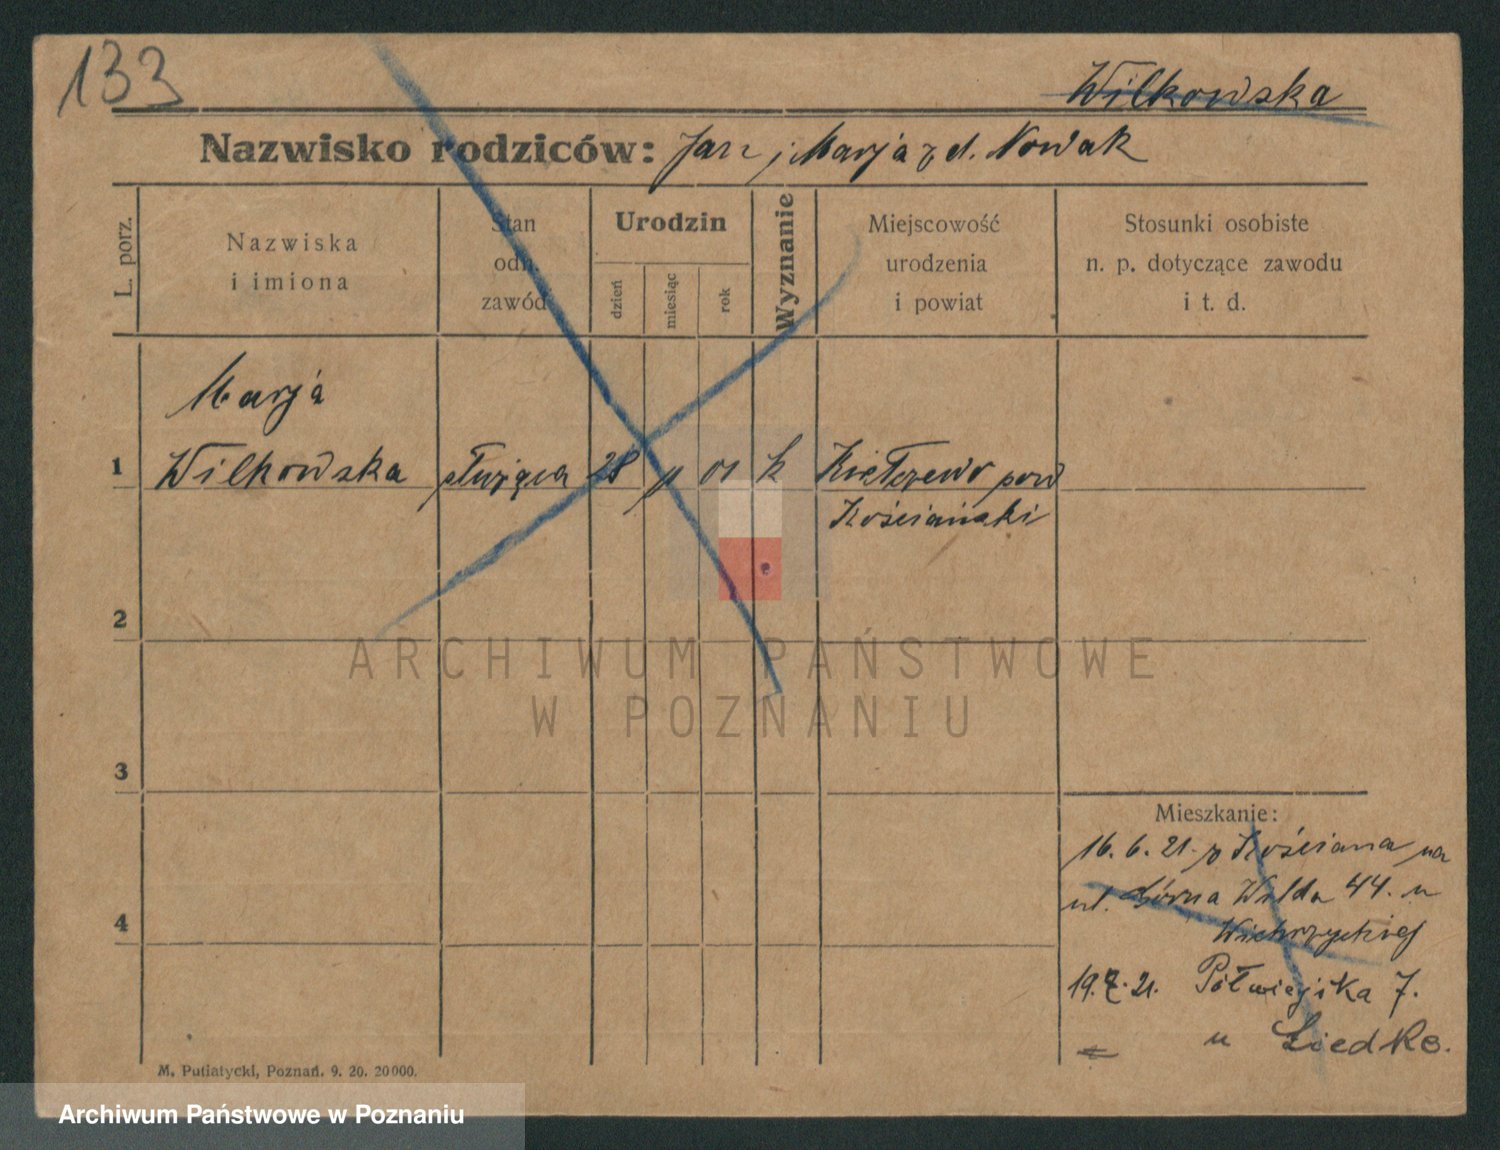 133
Wilkowska
Nazwisko rodziców: Jan i Marja z d. Nowak
L. porz.
Nazwiska
i imiona
Stan
odn.
zawód
Urodzin
dzień
miesiąc
rok
Wyznanie
Miejscowość
urodzenia
i powiat
Stosunki osobiste
n. p. dotyczące zawodu
i t. d.
Marja
1 Wilkowska służąca 28 01 k Kiełczewo pow
Kościański
2
3
4
ARCHIWUM PAŃSTWOWE
W POZNANIU
Mieszkanie:
16. 6. 21. z Kościana na
ul. Górna Wilda 44. u
19. 21. Półwiejska 7.
u
M. Putiatycki, Poznań. 9. 20. 20000.
Archiwum Państwowe w Poznaniu